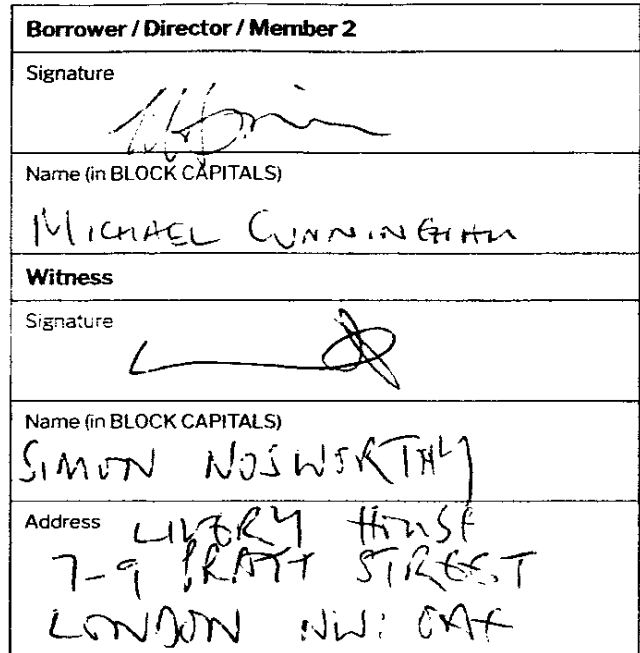 Borrower / Director / Member 2
Signature
Name (in BLOCK CAPITALS)
MICHAEL CUNNINGHAM
Witness
Signature
Name (in BLOCK CAPITALS)
SIMON NOSWORTHY
Address LIVERY HOUSE
7-9 PRATT STREET
LONDON NW1 0AE